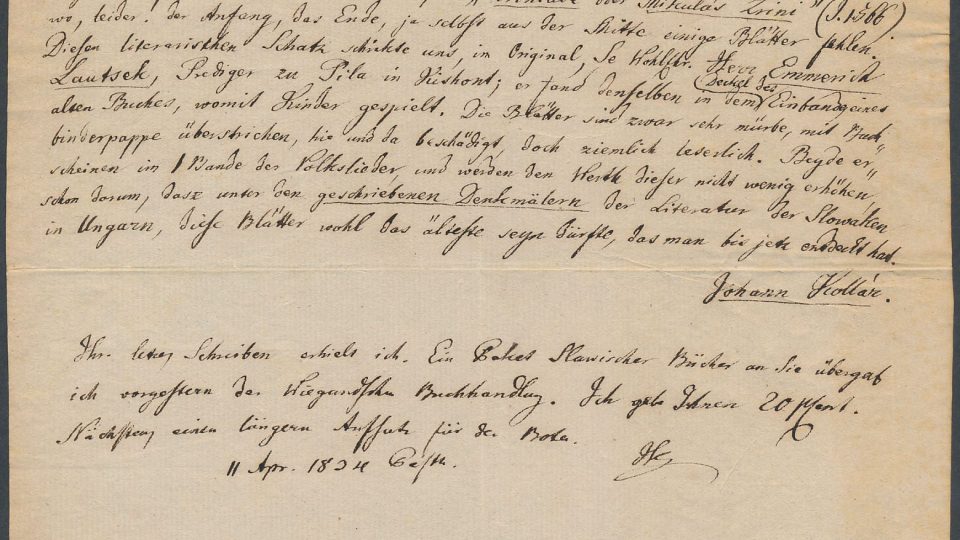 wo, leider! der Anfang, das Ende, ja selbst aus der Mitte einige Blätter fehlen.
Diesen literarischen Schatz schickte uns, im Original, Se Wohlehr. Herr Emmerich
Lautsek, Prediger zu Pila in Kishont; er fand denselben in dem Deckel des Einbands eines
alten Buches, womit Kinder gespielt. Die Blätter sind zwar sehr mürbe, mit Buch„
binderpappe überstrichen, hie und da beschädigt, doch ziemlich leserlich. Beyde er„
scheinen im 1 Bande der Volkslieder, und werden den Werth dieser nicht wenig erhöhen,
schon darum, dasz unter den geschriebenen Denkmälern der Literatur der Slowaken
in Ungarn, diese Blätter wohl das älteste seyn dürfte, das man bis jetz entdeckt hat.
Johann Kollár.
Ihr letzes Schreiben erhielt ich. Ein Paket Slawischer Bücher an Sie übergab
ich vorgestern der Wiegandschen Buchhandlug. Ich gebe Ihnen 20 
Nächstens einen längern Aufsatz für den Boten.
11 Apr. 1834 Pesth.